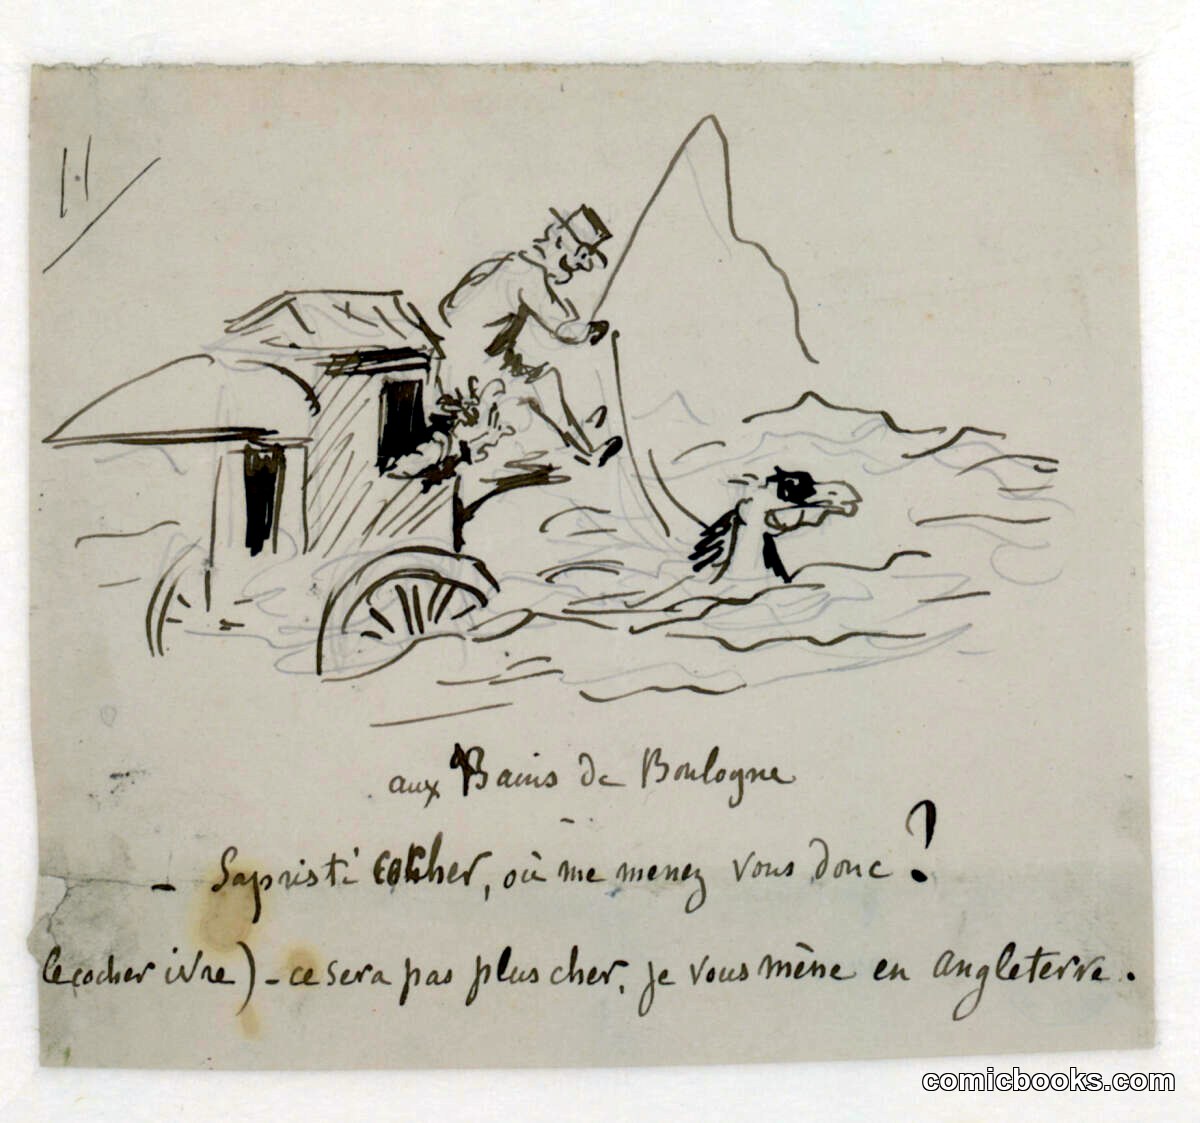 11
aux Bains de Boulogne
- Sapristi cocher, où me menez vous donc ?
le cocher ivre) - ce sera pas plus cher, je vous mène en angleterre.
comicbooks.com